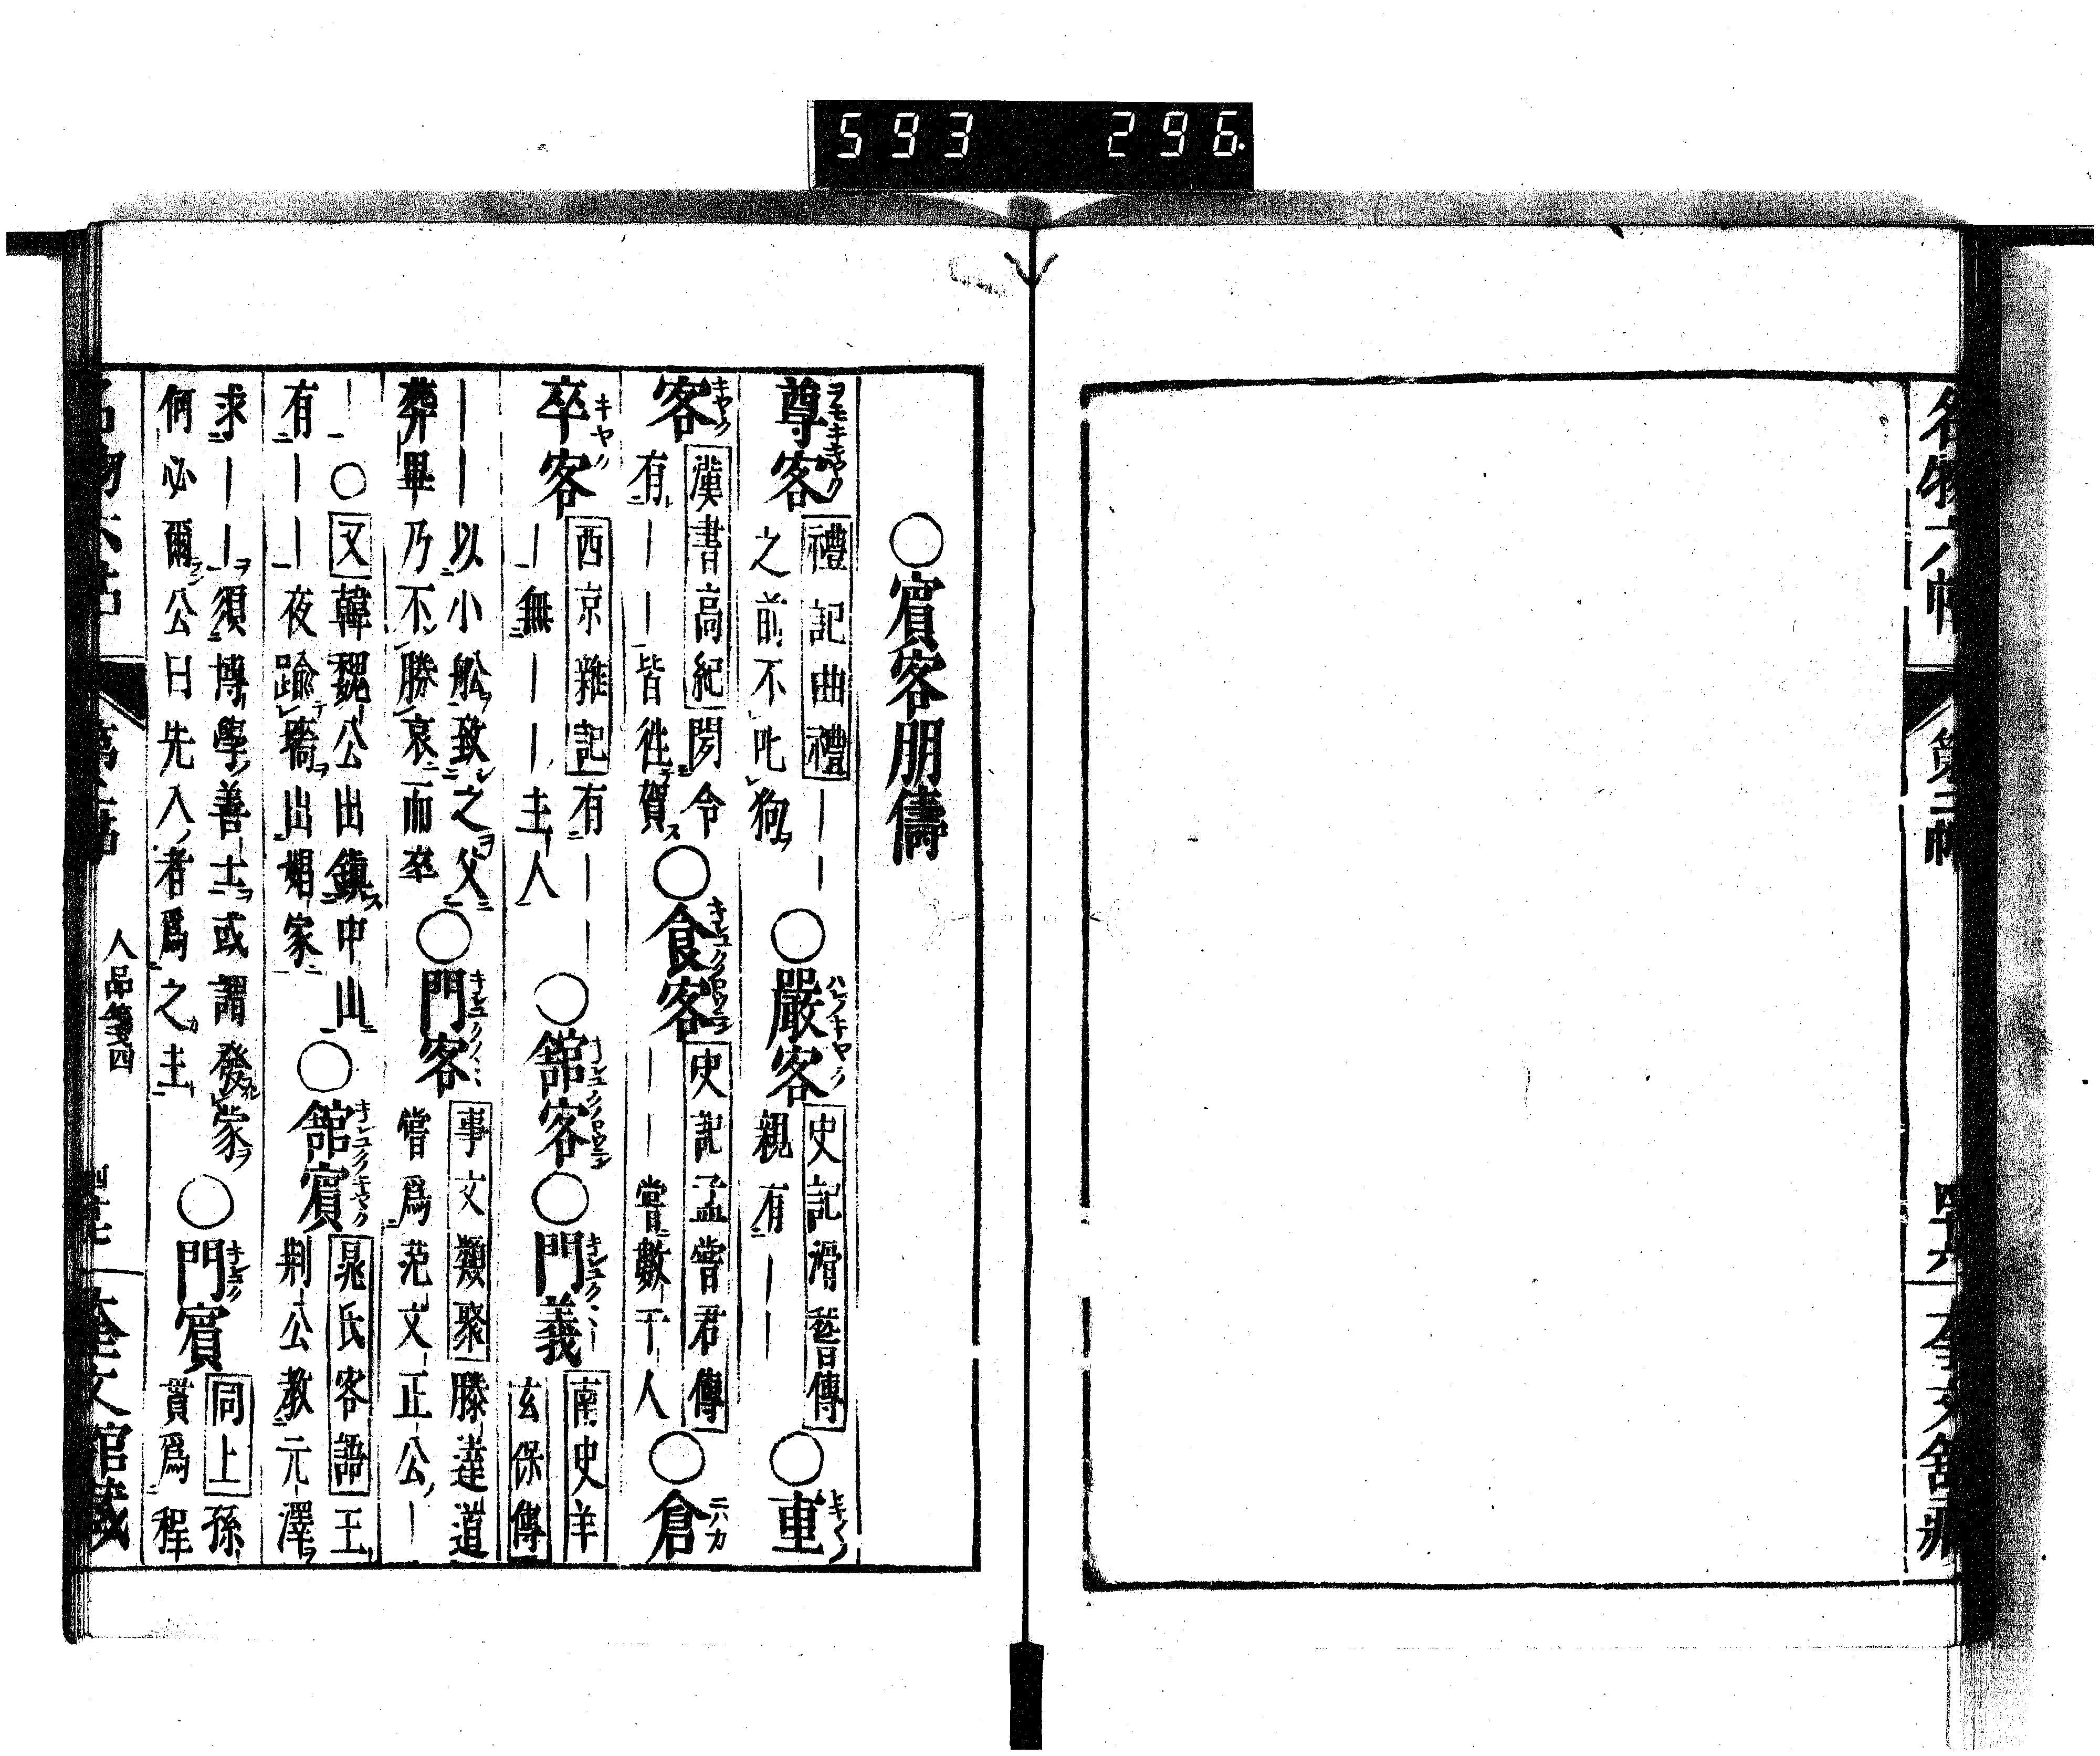 593 296
名物六帖
第二帖
奎文館藏
○賓客朋儔
尊客 禮記曲禮――之前不叱狗 ○嚴客 史記滑稽傳親有―― ○重
客 漢書高紀聞令有――皆徃賀 ○食客 史記孟嘗君傳――嘗數千人 ○倉
卒客 西京雜記有―――無――主人 ○舘客 ○門義 南史羊玄保傳
――以小舩致之父葬畢乃不勝哀而卒 ○門客 事文類聚滕達道嘗爲范文正公―
―○又韓魏公出鎭中山有――夜踰墻出娼家 ○舘賓 晁氏客語王荆公教元澤
求――須博學善士或謂發蒙何必爾公曰先入者爲之主 ○門賓 同上孫賁爲程
人品箋四
奎文館藏